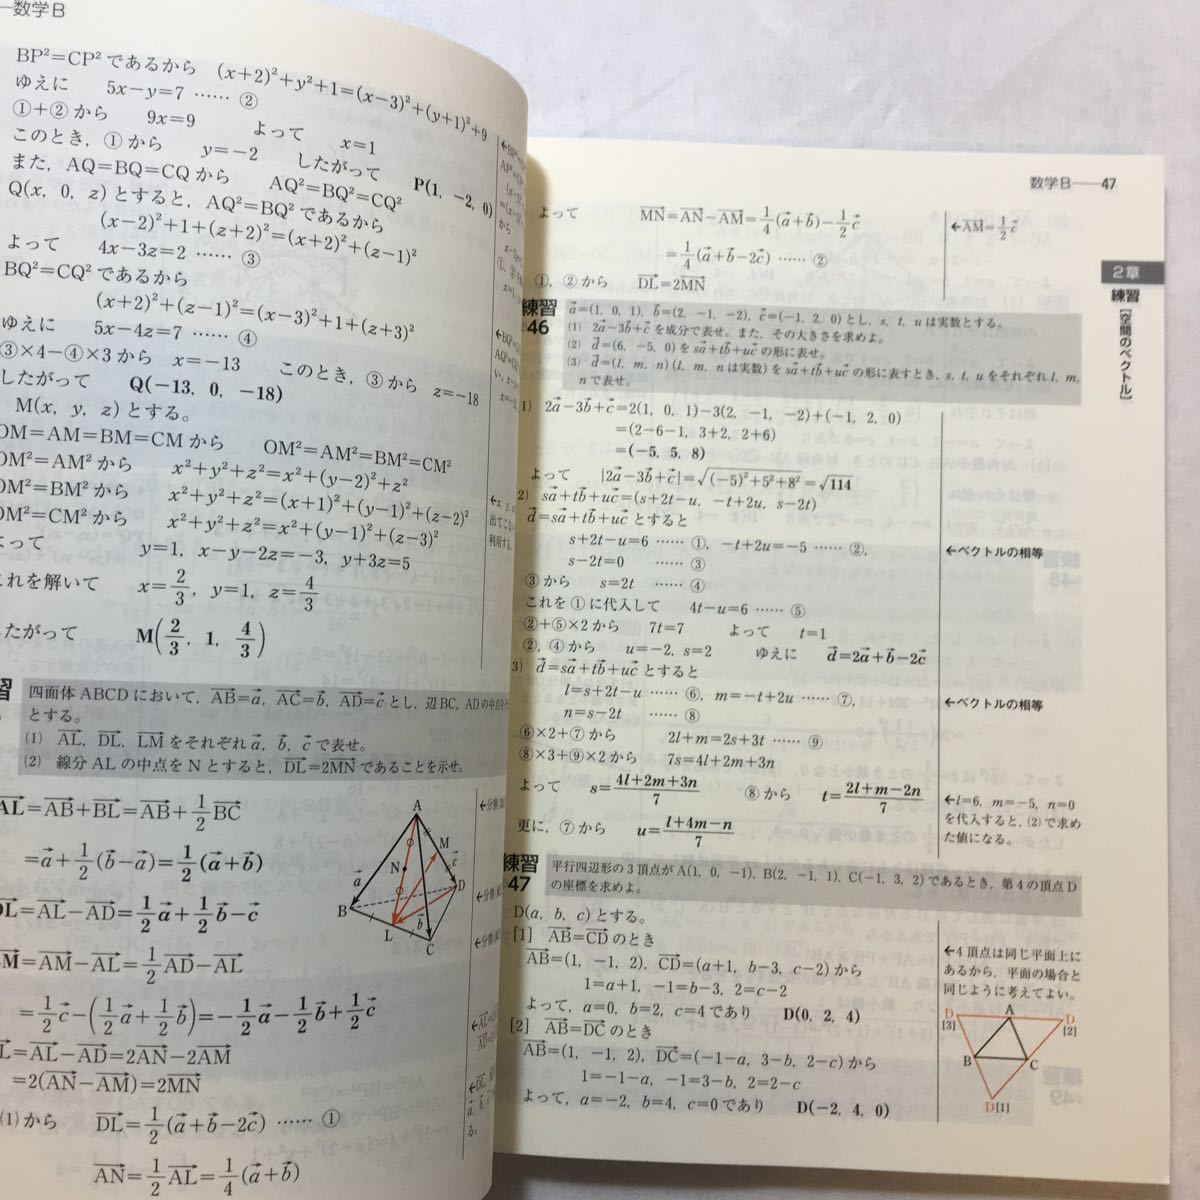 数学B
BP²=CP² であるから (x+2)²+y²+1=(x−3)²+(y+1)²+9
ゆえに 5x−y=7 …… ②
①+② から 9x=9 よって x=1
このとき, ① から y=−2 したがって P(1, −2, 0)
また, AQ=BQ=CQ から AQ²=BQ²=CQ²
Q(x, 0, z) とすると, AQ²=BQ² であるから
(x−2)²+1+(z+2)²=(x+2)²+(z−1)²
よって 4x−3z=2 …… ③
BQ²=CQ² であるから
(x+2)²+(z−1)²=(x−3)²+1+(z+3)²
ゆえに 5x−4z=7 …… ④
③×4−④×3 から x=−13 このとき, ③ から z=−18
したがって Q(−13, 0, −18)
M(x, y, z) とする。
OM=AM=BM=CM から OM²=AM²=BM²=CM²
OM²=AM² から x²+y²+z²=x²+(y−2)²+z²
OM²=BM² から x²+y²+z²=(x+1)²+(y−1)²+(z−2)²
OM²=CM² から x²+y²+z²=x²+(y−1)²+(z−3)²
よって y=1, x−y−2z=−3, y+3z=5
これを解いて x=2/3, y=1, z=4/3
したがって M(2/3, 1, 4/3)
四面体 ABCD において, AB→=a→, AC→=b→, AD→=c→ とし, 辺 BC, AD の中点を
とする。
(1) AL→, DL→, LM→ をそれぞれ a→, b→, c→ で表せ。
(2) 線分 AL の中点を N とすると, DL→=2MN→ であることを示せ。
AL→=AB→+BL→=AB→+1/2 BC→
=a→+1/2(b→−a→)=1/2(a→+b→)
DL→=AL→−AD→=1/2 a→+1/2 b→−c→
M→=AM→−AL→=1/2 AD→−AL→
=1/2 c→−(1/2 a→+1/2 b→)=−1/2 a→−1/2 b→+1/2 c→
L→=AL→−AD→=2AN→−2AM→
=2(AN→−AM→)=2MN→
(1) から DL→=1/2(a→+b→−2c→) …… ①
AN→=1/2 AL→=1/4(a→+b→)
A
M
c→
N
a→
D
B
b→
L
C
数学B 47
よって MN→=AN→−AM→=1/4(a→+b→)−1/2 c→
←AM→=1/2 c→
=1/4(a→+b→−2c→) …… ②
①, ② から DL→=2MN→
2章
練習
[空間のベクトル]
練習
46
a→=(1, 0, 1), b→=(2, −1, −2), c→=(−1, 2, 0) とし, s, t, u は実数とする。
(1) 2a→−3b→+c→ を成分で表せ。また, その大きさを求めよ。
(2) d→=(6, −5, 0) を sa→+tb→+uc→ の形に表せ。
(3) d→=(l, m, n) (l, m, n は実数) を sa→+tb→+uc→ の形に表すとき, s, t, u をそれぞれ l, m,
n で表せ。
1) 2a→−3b→+c→=2(1, 0, 1)−3(2, −1, −2)+(−1, 2, 0)
=(2−6−1, 3+2, 2+6)
=(−5, 5, 8)
よって |2a→−3b→+c→|=√((−5)²+5²+8²)=√114
2) sa→+tb→+uc→=(s+2t−u, −t+2u, s−2t)
d→=sa→+tb→+uc→ とすると
s+2t−u=6 …… ①, −t+2u=−5 …… ②,
←ベクトルの相等
s−2t=0 …… ③
③ から s=2t …… ④
これを ① に代入して 4t−u=6 …… ⑤
②+⑤×2 から 7t=7 よって t=1
②, ④ から u=−2, s=2 ゆえに d→=2a→+b→−2c→
3) d→=sa→+tb→+uc→ とすると
l=s+2t−u …… ⑥, m=−t+2u …… ⑦,
←ベクトルの相等
n=s−2t …… ⑧
⑥×2+⑦ から 2l+m=2s+3t …… ⑨
⑧×3+⑨×2 から 7s=4l+2m+3n
よって s=(4l+2m+3n)/7 ⑧ から t=(2l+m−2n)/7
←l=6, m=−5, n=0
を代入すると, (2)で求め
た値になる。
更に, ⑦ から u=(l+4m−n)/7
練習
47
平行四辺形の 3 頂点が A(1, 0, −1), B(2, −1, 1), C(−1, 3, 2) であるとき, 第 4 の頂点 D
の座標を求めよ。
D(a, b, c) とする。
[1] AB→=CD→ のとき
AB→=(1, −1, 2), CD→=(a+1, b−3, c−2) から
1=a+1, −1=b−3, 2=c−2
よって, a=0, b=2, c=4 であり D(0, 2, 4)
[2] AB→=DC→ のとき
AB→=(1, −1, 2), DC→=(−1−a, 3−b, 2−c) から
1=−1−a, −1=3−b, 2=2−c
よって, a=−2, b=4, c=0 であり D(−2, 4, 0)
←4 頂点は同じ平面上に
あるから, 平面の場合と
同じように考えてよい。
D
[3]
A
D
[2]
B
C
D[1]